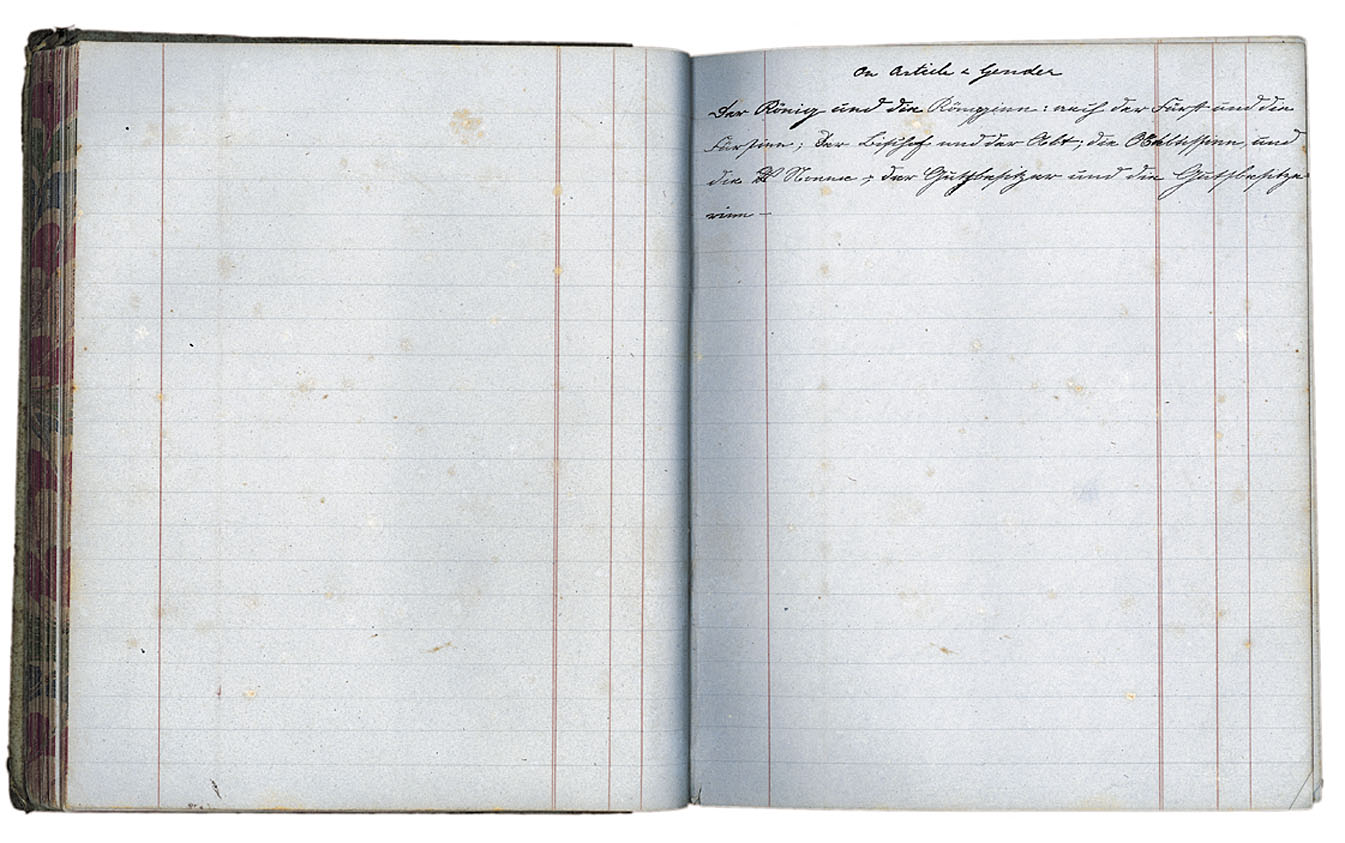 On Article & Gender
Der König und die Königinn: auch der Fürst und die
Fürstinn; Der Bischof und der Abt; die Aebtissinn, und
die Nonne; der Gutsbesitzer und die Gutsbesitze-
rinn —